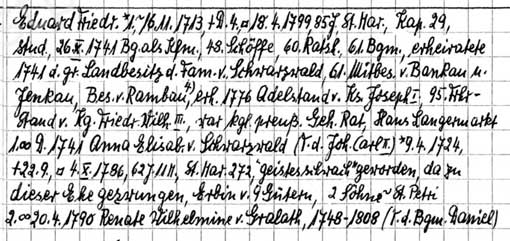 Eduard Friedr. *1.~16.11.1713, +D.4. ¤ 18.4.1799 85J St. Mar., Kap. 29,
stud., 26.X.1741 Bg. als Kfm., 48. Schöffe, 60. Ratsh., 61. Bgm., erheiratete
1741 d. gr. Landbesitz d. Fam. v. Schwarzwald, 61. Mitbes. v. Bankau u.
Jenkau, Bes. v. Rambau,⁴⁾ erh. 1776 Adelstand v. Ks. Joseph I., 95. Frhr-
Stand v. Kg. Friedr. Wilh. III., war kgl. preuß. Geh. Rat, Haus Langermarkt
1.∞ D. 1741 Anna Elisab. v. Schwarzwald (T. d. Joh. Carl II.) *9.4.1724,
+22.9., ¤ 4.X.1786, 62J 11M, St. Mar. 272, "geistesschwach" geworden, da zu
dieser Ehe gezwungen, Erbin v. 9 Gütern, 2 Söhne ~ St. Petri
2.∞ 20.4.1790 Renate Wilhelmine v. Gralath, 1748-1808 (T. d. Bgm. Daniel)